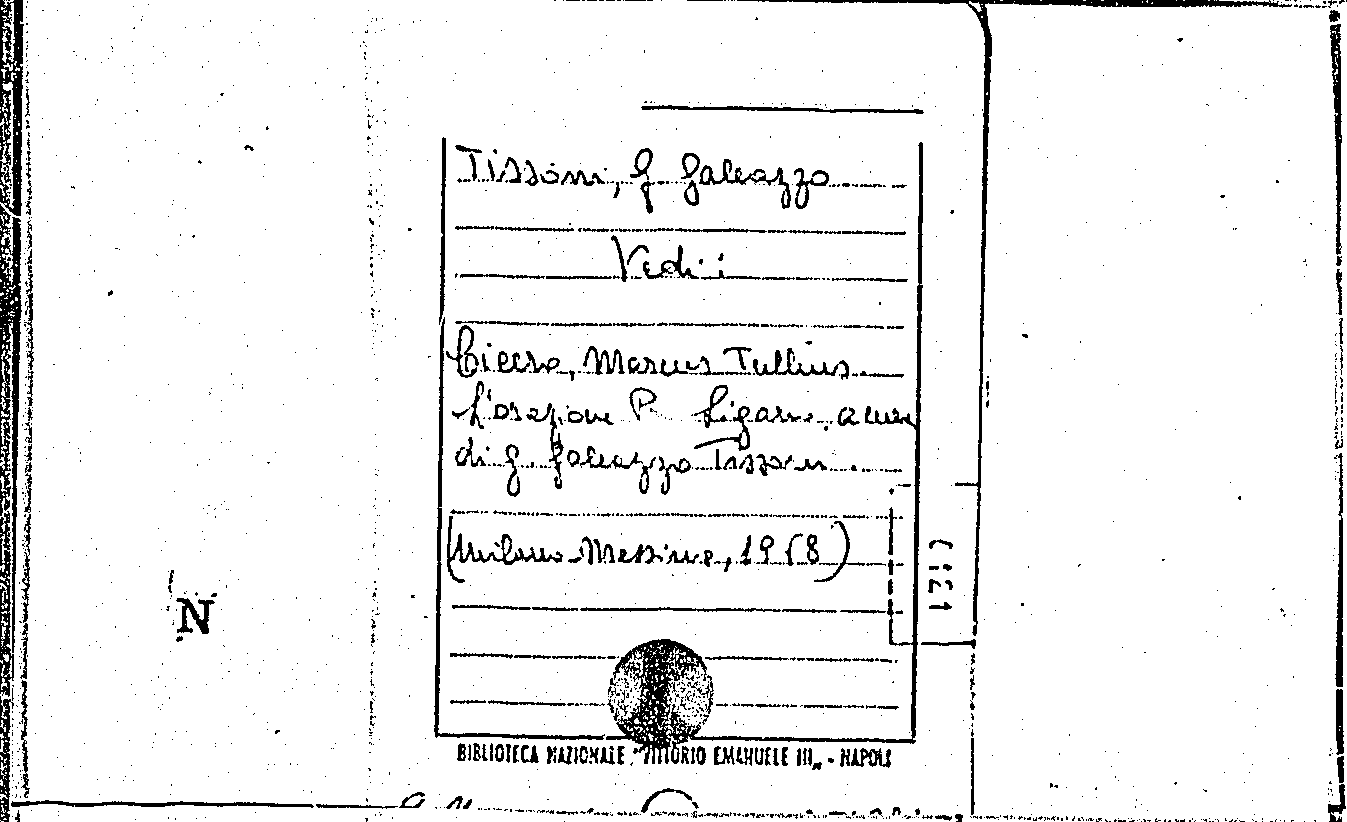 Tissoni, G Galeazzo
Vedi:
Cicero, Marcus Tullius.
L'orazione P. Ligario, a cura
di G. Galeazzo Tissoni.
(Milano-Messina, 1958)
N
BIBLIOTECA NAZIONALE "VITTORIO EMANUELE III„ - NAPOLI